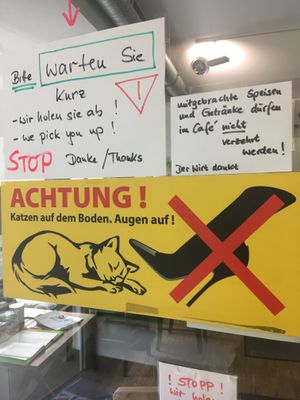 Bitte warten Sie
Kurz
- wir holen sie ab !
- we pick you up !
STOP Danke / Thanks
!
mitgebrachte Speisen
und Getränke dürfen
im Café nicht
verzehrt
werden !
Der Wirt dankt
ACHTUNG !
Katzen auf dem Boden. Augen auf !
! STOPP !
wir holen